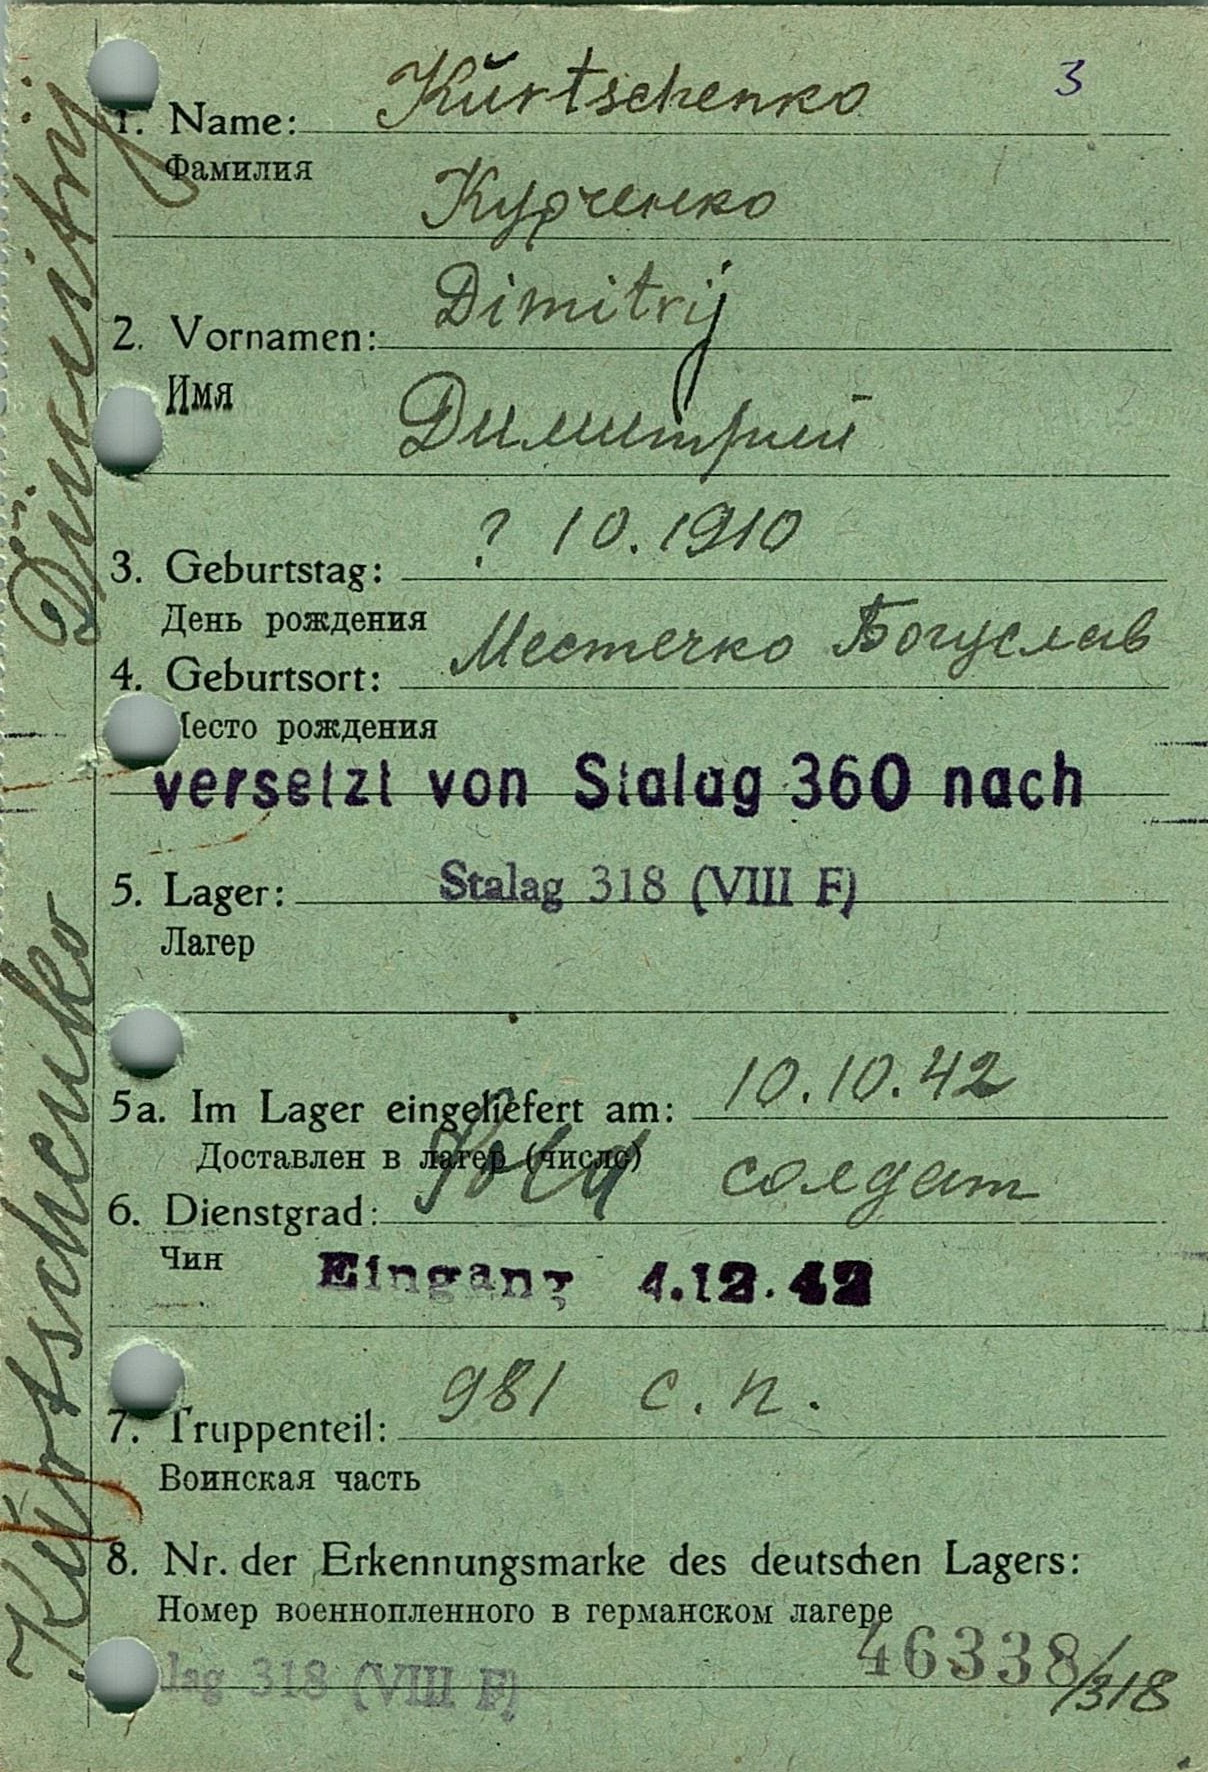 Kurtschenko 3
1. Name:
Фамилия
Курченко
Dimitrij
2. Vornamen:
Имя
Димитрий
? 10.1910
3. Geburtstag:
День рождения
Местечко Богуслав
4. Geburtsort:
Место рождения
versetzt von Stalag 360 nach
5. Lager: Stalag 318 (VIII F)
Лагер
5a. Im Lager eingeliefert am: 10.10.42
Доставлен в лагер (число)
6. Dienstgrad: Sold солдат
Чин
Eingang 4.12.42
981 с.п.
7. Truppenteil:
Воинская часть
8. Nr. der Erkennungsmarke des deutschen Lagers:
Номер военнопленного в германском лагере
46338/318
lag 318 (VIII F)
Kurtschenko Dimitrij